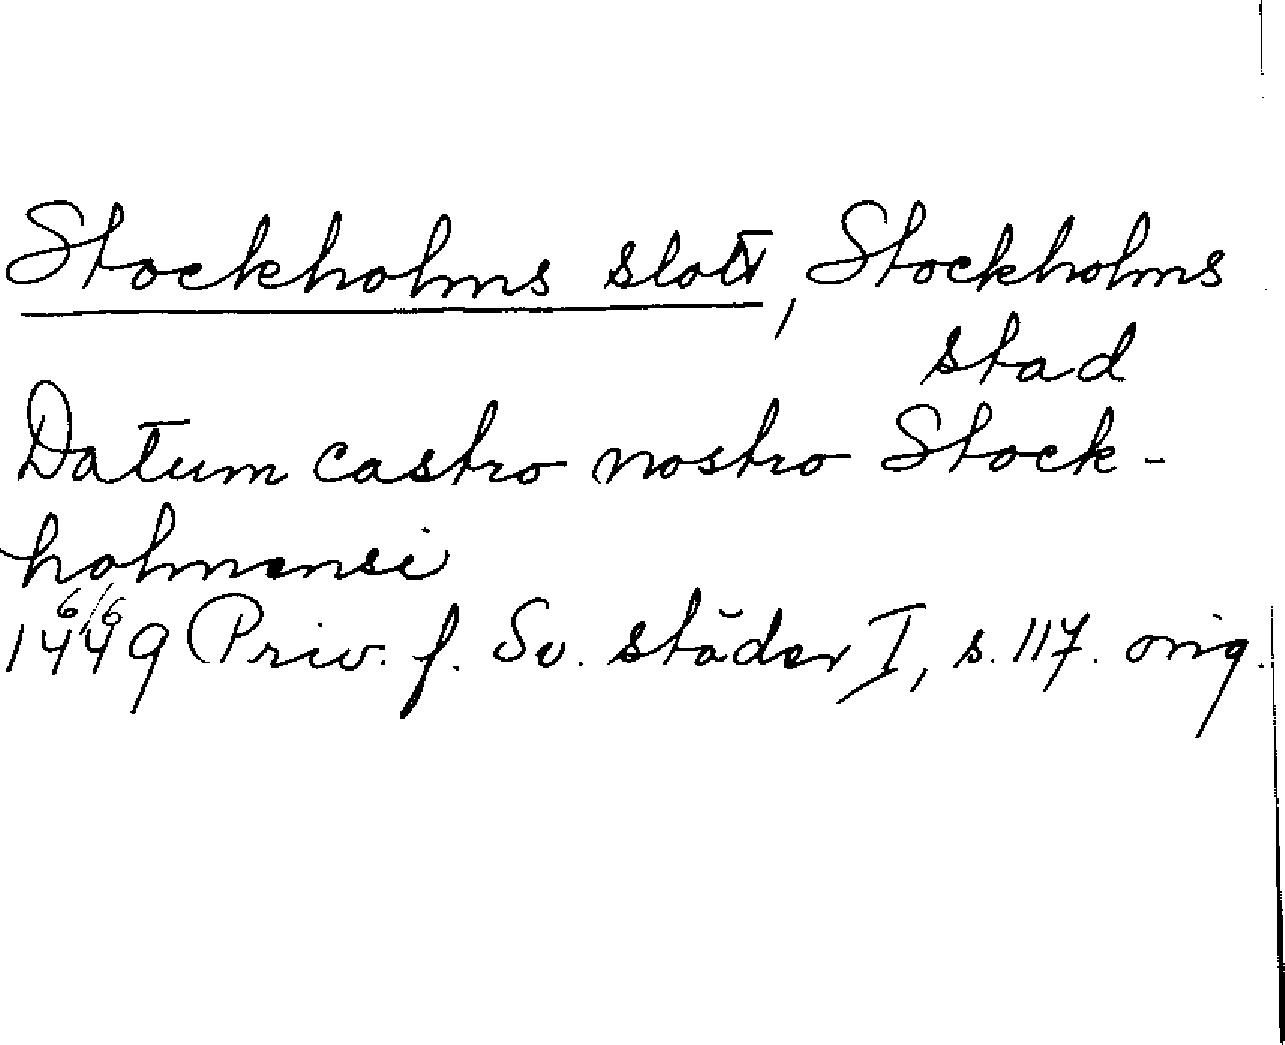 Stockholms slott, Stockholms
stad
Datum castro nostro Stock-
holmensi
6/6
1449 Priv. f. Sv. städer I, s. 117. orig.